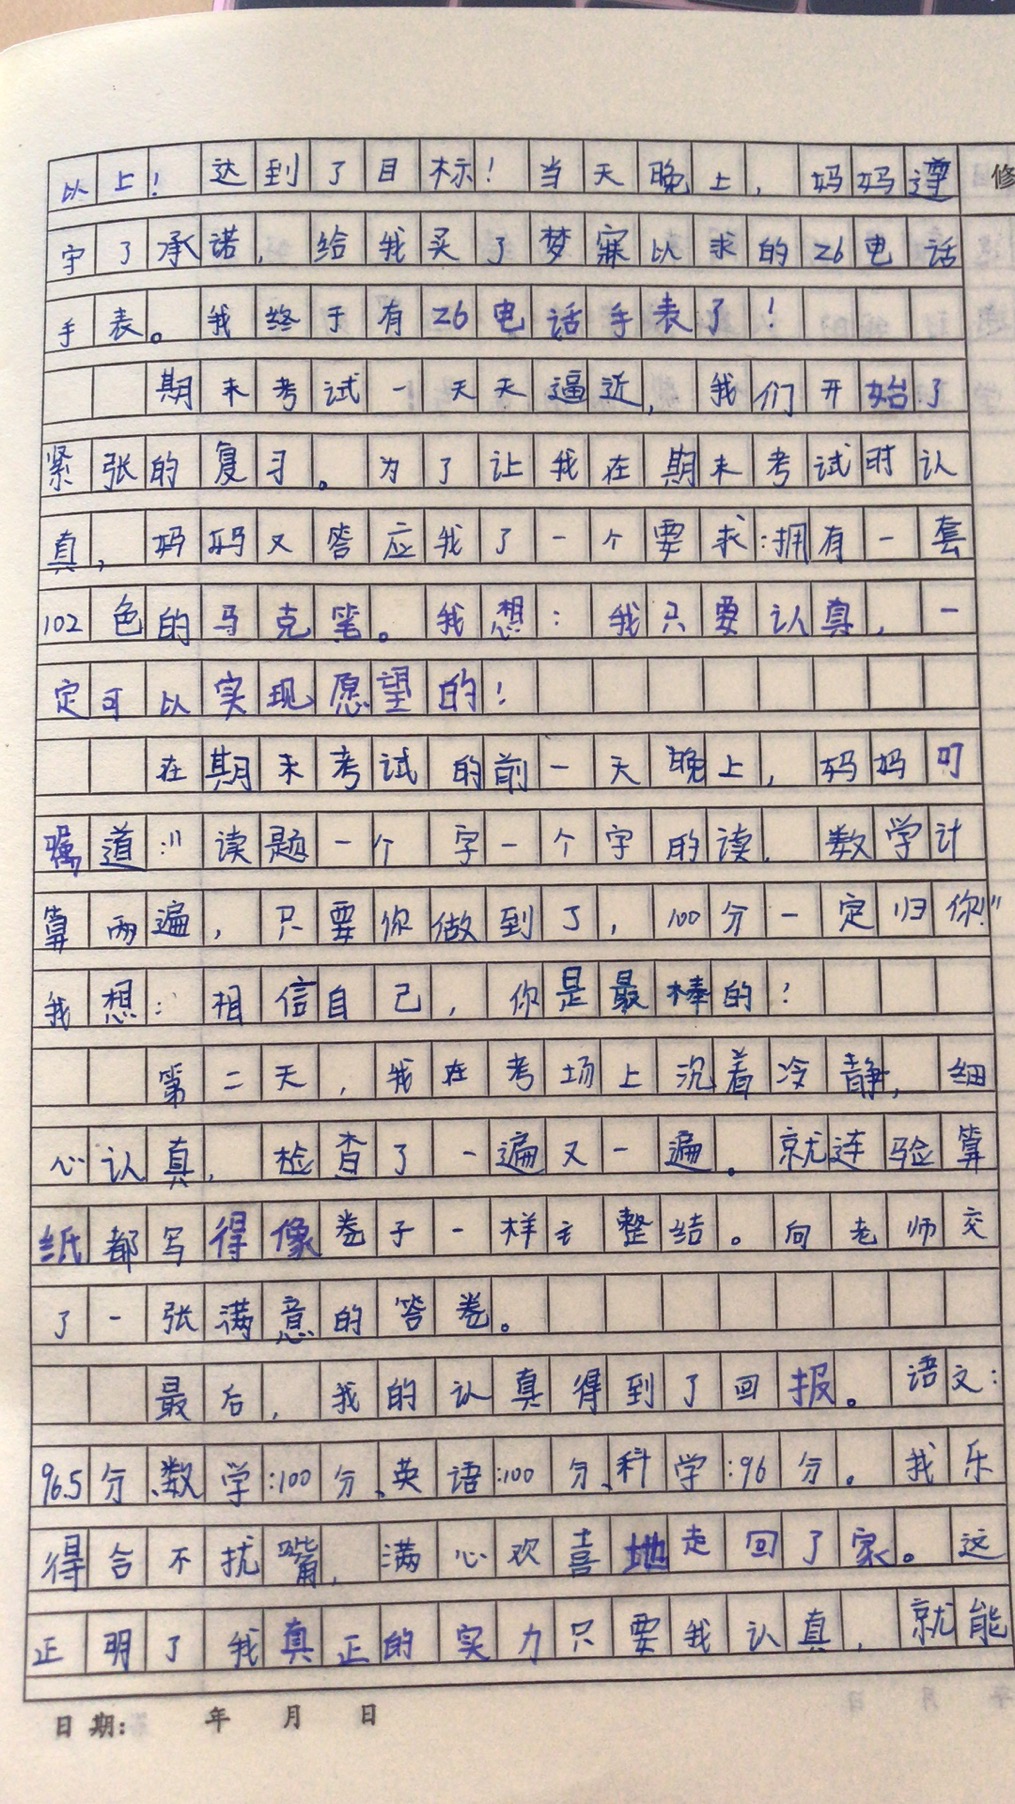 以上！达到了目标！当天晚上，妈妈遵
守了承诺，给我买了梦寐以求的Z6电话
手表。我终于有Z6电话手表了！
期末考试一天天逼近，我们开始了
紧张的复习。为了让我在期末考试时认
真，妈妈又答应我了一个要求：拥有一套
102色的马克笔。我想：我只要认真，一
定可以实现愿望的！
在期末考试的前一天晚上，妈妈叮
嘱道：“读题一个字一个字的读，数学计
算两遍，只要你做到了，100分一定归你！”
我想：相信自己，你是最棒的！
第二天，我在考场上沉着冷静，细
心认真，检查了一遍又一遍。就连验算
纸都写得像卷子一样整结。向老师交
了一张满意的答卷。
最后，我的认真得到了回报。语文：
96.5分、数学：100分、英语：100分、科学：96分。我乐
得合不扰嘴，满心欢喜地走回了家。这
正明了我真正的实力只要我认真，就能
日期： 年 月 日
修